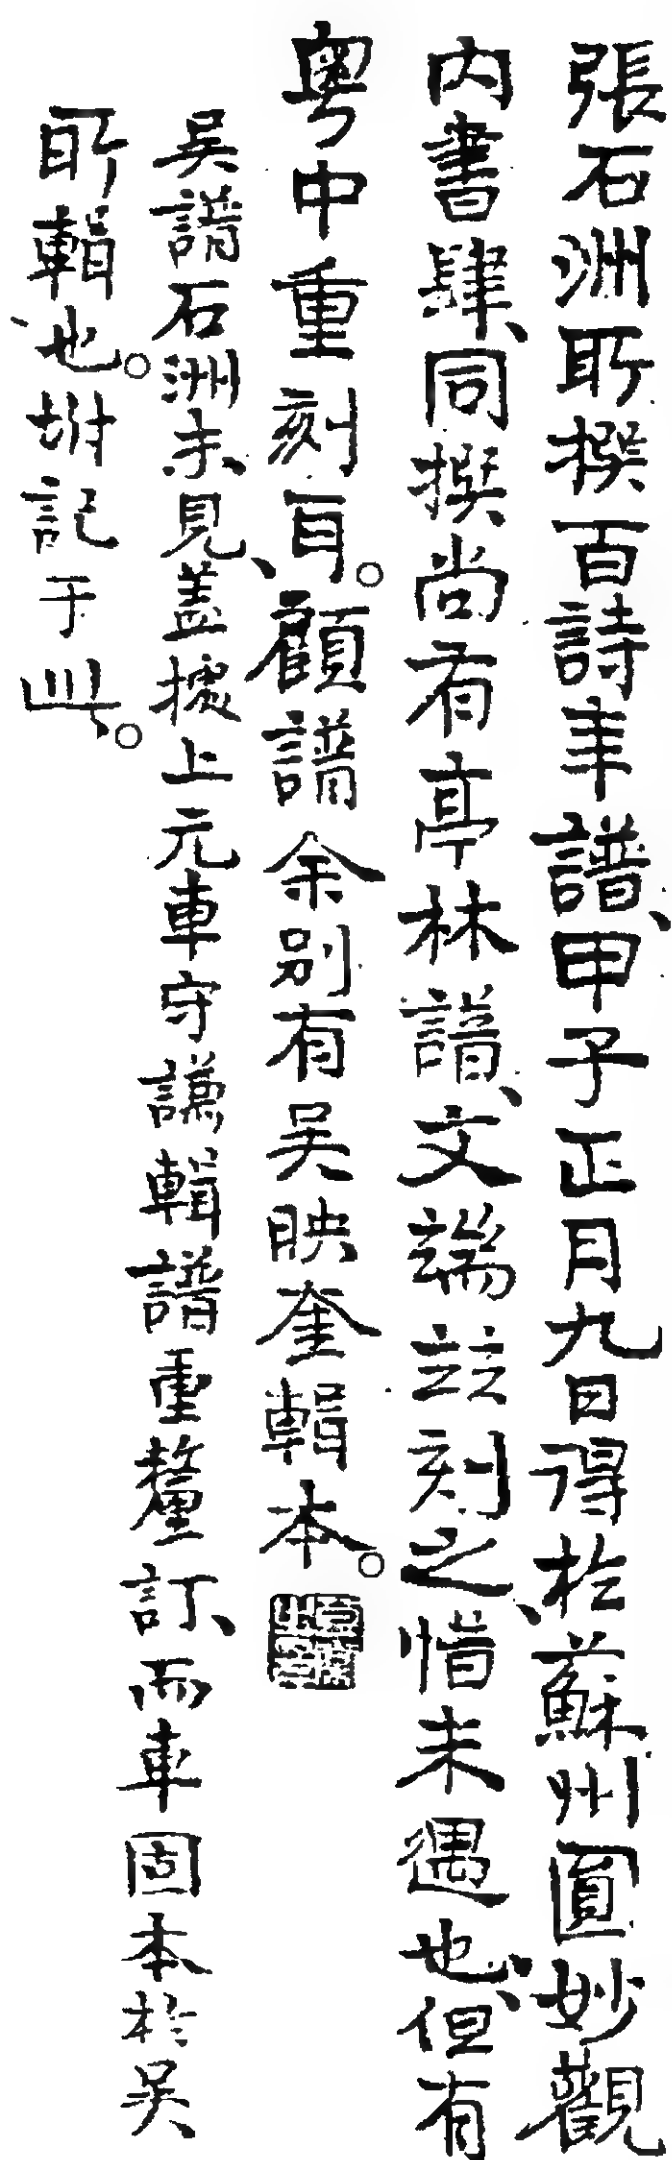 張石洲所撰百詩年譜、甲子正月九日得於蘇州圓妙觀
內書肆、同撰尚有亭林譜、文端竝刻之、惜未遇也、但有
粤中重刻耳。顧譜余別有吳映奎輯本。
吳譜石洲未見、蓋據上元車守謙輯譜重釐訂、而車固本於吳
所輯也。坿記于此。